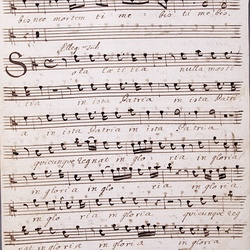 bio nec mortem ti me bio ti me bio.
Allegro
Sola læ ti tia nulla mœsti
tia in ista Patria in ista Patri
a in ista Patria in ista Patria
quicunque Regnat in glo ria in gloria
in gloria in glo ria in gloria
in glo ria in gloria quicunque Reg
nat in gloria in gloria in gloria